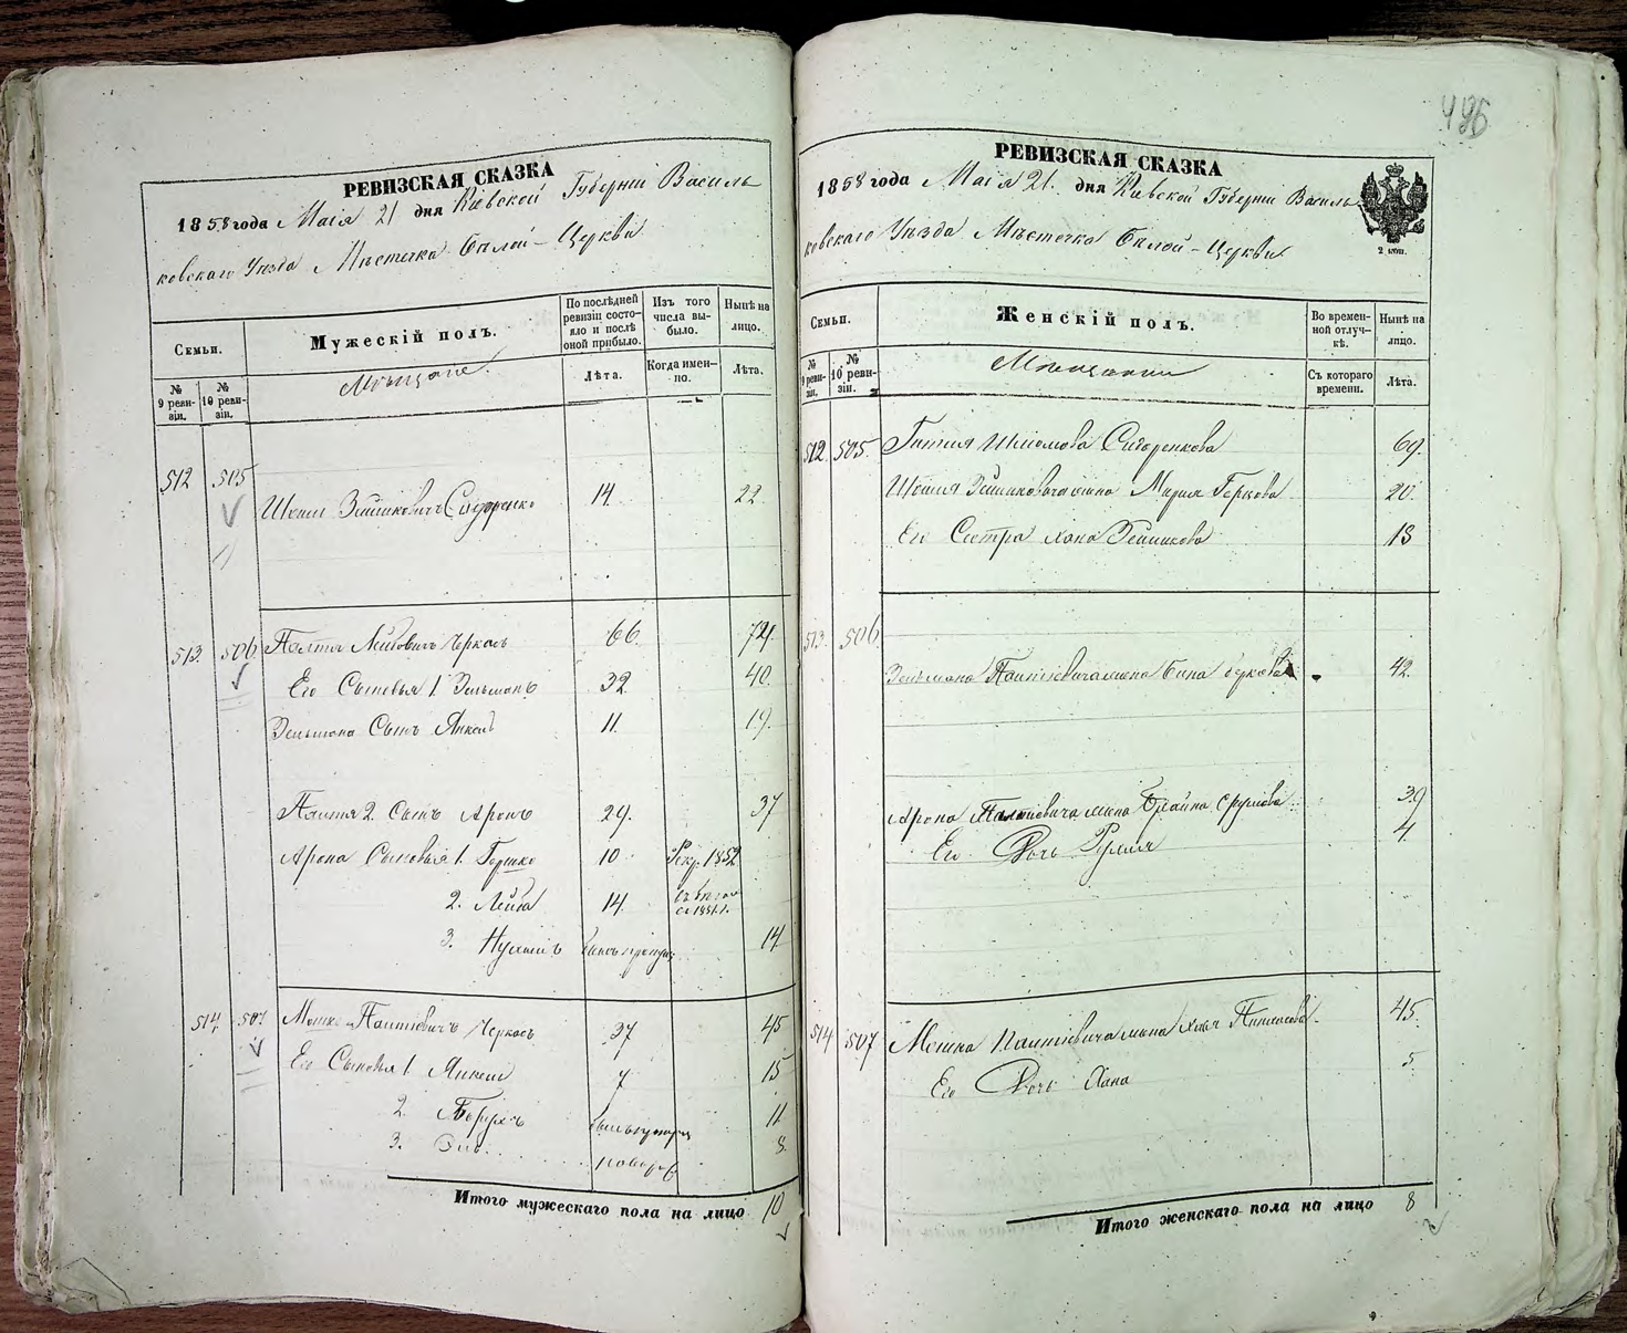 496
РЕВИЗСКАЯ СКАЗКА
1858 года Маія 21 дня Кіевской Губерніи Василь
ковскаго Уѣзда Мѣстечка Бѣлой-Церкви
Семьи.
№ 9 ревизіи.
№ 10 ревизіи.
Мужескій полъ.
Мѣщане.
По послѣдней ревизіи состояло и послѣ оной прибыло.
Лѣта.
Изъ того числа выбыло.
Когда именно.
Нынѣ на лицо.
Лѣта.
512 505
Зейликовичъ Сидоренко 14. 22
513. 506. Палтія Лейбовичъ Черкасъ 66. 74.
Его Сыновья 1. Зельманъ 32. 40.
Зельмана Сынъ Янкель 11. 19.
Палтія 2. Сынъ Аронъ 29. 37
Арона Сыновья 1. Гершко 10 Рекр. 1852
2. Лейба 14.
3. 14
514. 507 Мошко Палтіевичъ Черкасъ 37 45
Его Сыновья 1. Янкель 7 15
2. Борухъ 11
3. 8.
новорож
Итого мужескаго пола на лицо 10
РЕВИЗСКАЯ СКАЗКА
1858 года Маія 21. дня Кіевской Губерніи Василь
ковскаго Уѣзда Мѣстечка Бѣлой-Церкви
2 коп.
Семьи.
№ 9 ревизіи.
№ 10 ревизіи.
Женскій полъ.
Мѣщанки
Во временной отлучкѣ.
Съ котораго времени.
Нынѣ на лицо.
Лѣта.
512. 505. Сидоренкова 69.
жена Марія Беркова 20.
Его Сестра Хана Зейликова 13
513. 506
Зельмана Палтіевича жена Бина Беркова 42.
Арона Палтіевича жена Фрайна Срулова 39
Его Дочь 4.
514 507 Мошка Палтіевича жена Хая 45.
Его Дочь Хана 5.
Итого женскаго пола на лицо 8